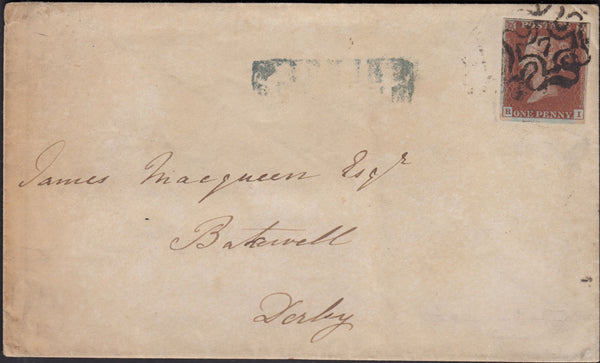 POSTAGE
7
B I
ONE PENNY
James Macqueen Esqr
Bakewell
Derby